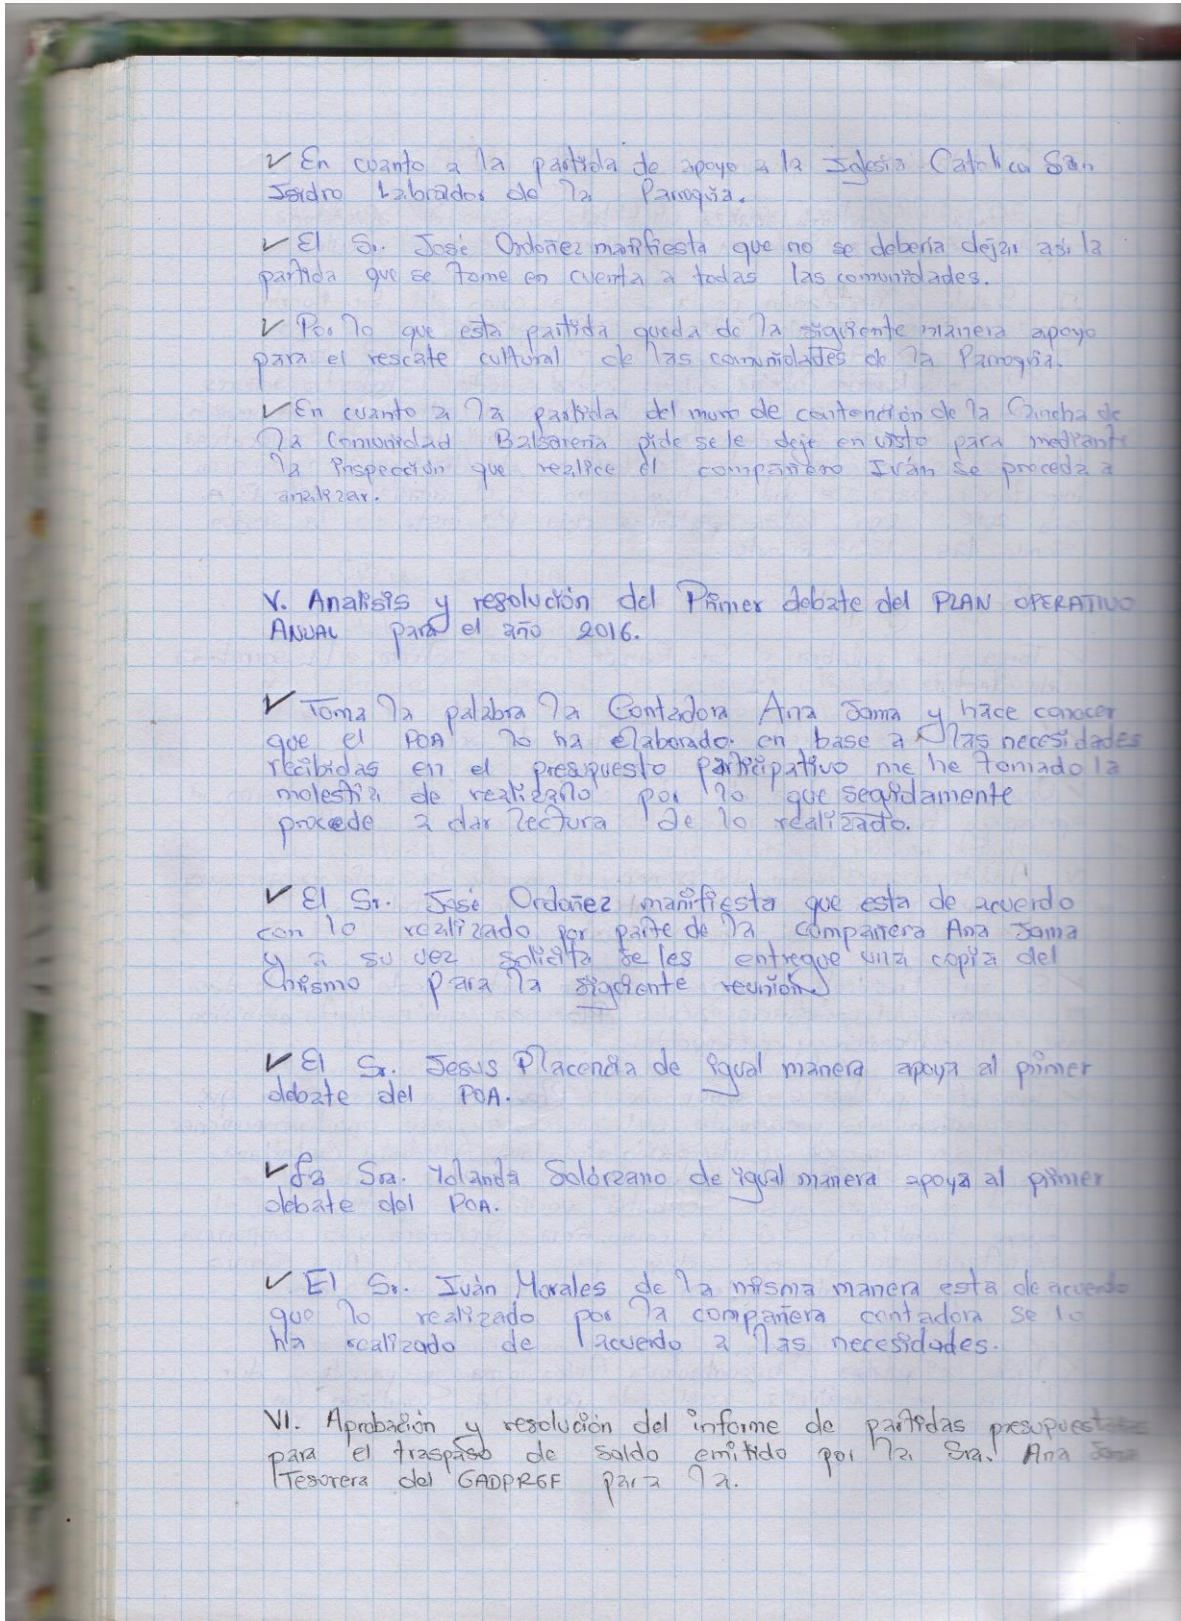 ✓ En cuanto a la partida de apoyo a la Iglesia Catolica San
Isidro Labrador de la Parroquia.
✓ El Sr. José Ordoñez manifiesta que no se debería dejar asi la
partida que se tome en cuenta a todas las comunidades.
✓ Por lo que esta partida queda de la siguiente manera apoyo
para el rescate cultural de las comunidades de la Parroquia.
✓ En cuanto a la partida del muro de contención de la Cancha de
la Comunidad Balsareña pide se le deje en visto para mediante
la inspección que realice el compañero Iván se proceda a
analizar.
V. Analisis y resolución del Primer debate del PLAN OPERATIVO
ANUAL para el año 2016.
✓ Toma la palabra la Contadora Ana Jama y hace conocer
que el POA lo ha elaborado en base a las necesidades
recibidas en el presupuesto participativo me he tomado la
molestia de realizarlo por lo que seguidamente
procede a dar lectura de lo realizado.
✓ El Sr. José Ordoñez manifiesta que esta de acuerdo
con lo realizado por parte de la compañera Ana Jama
y a su vez solicita se les entregue una copia del
mismo para la siguiente reunión
✓ El Sr. Jesus Placencia de igual manera apoya al primer
debate del POA.
✓ La Sra. Yolanda Solórzano de igual manera apoya al primer
debate del POA.
✓ El Sr. Iván Morales de la misma manera esta de acuerdo
que lo realizado por la compañera contadora se lo
ha realizado de acuerdo a las necesidades.
VI. Aprobación y resolución del informe de partidas
para el traspaso de saldo emitido por la Sra. Ana Jama
Tesorera del GADPRGF para la.